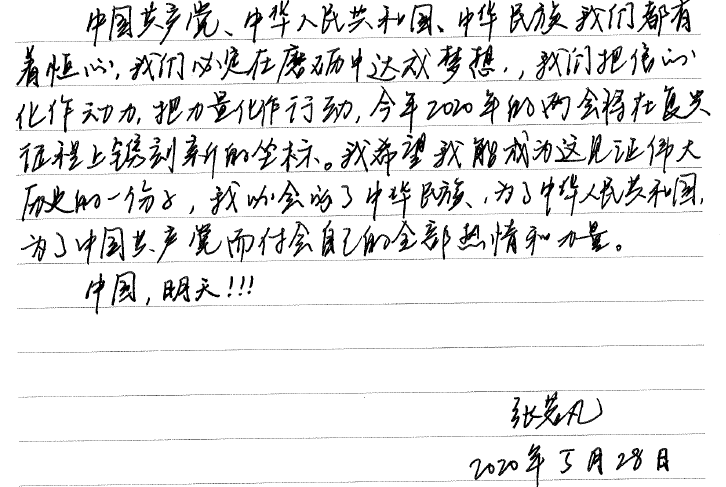 中国共产党、中华人民共和国、中华民族我们都有
着恒心,我们必定在磨砺中达成梦想.,我们把信心
化作动力,把力量化作行动,今年2020年的两会将在复兴
征程上镌刻新的坐标。我希望我能成为这见证伟大
历史的一份子,我必会为了中华民族、为了中华人民共和国,
为了中国共产党而付会自己的全部热情和力量。
中国,明天!!!
张若凡
2020年5月28日